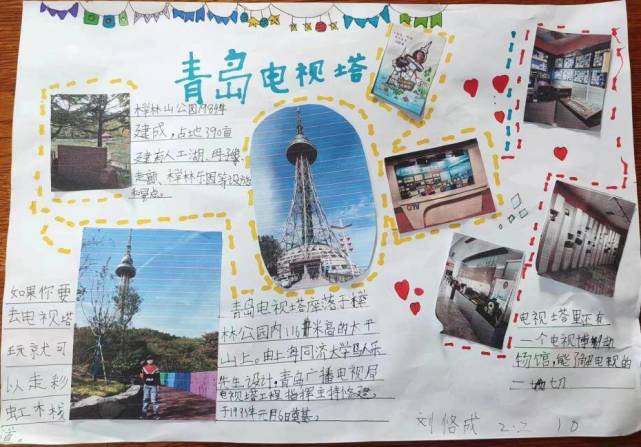 青岛电视塔
榉林山公园1984年
建成，占地390亩
建有人工湖、母子像
走廊、榉林乐园等设施
和景点。
如果你要
去电视塔
玩就可
以走彩
虹木栈
道。
青岛电视塔座落于榉
林公园内116米高的太平
山上。由上海同济大学马人乐
先生设计，青岛广播电视局
电视塔工程指挥主持修建，
于19
电视塔里还有
一个电视博
场馆，能了解电视的
一切
CTV
刘佫成 2.2 10